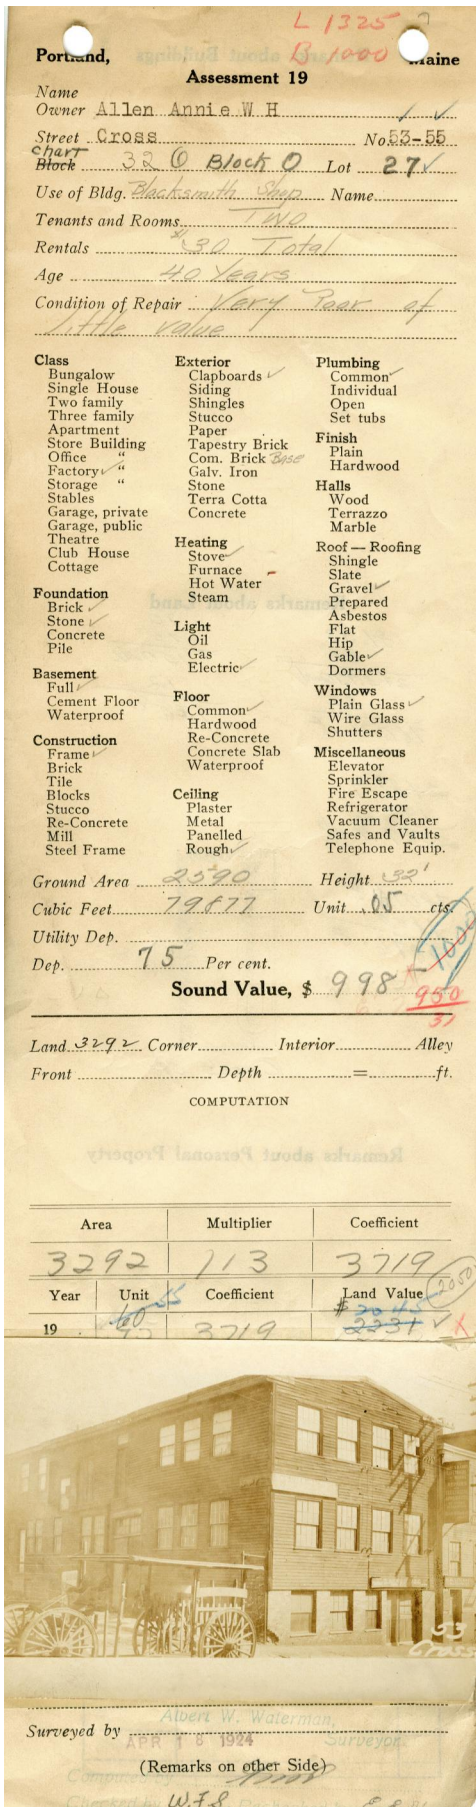 L 1325
B 1000
Portland, Maine
Assessment 19
Name
Owner Allen Annie W H
Street Cross No. 53-55
Chart
Block 32 Block O Lot 27
Use of Bldg. Blacksmith Shop Name
Tenants and Rooms Two
Rentals $30 Total
Age 40 Years
Condition of Repair Very Poor of
little value
Class
Bungalow
Single House
Two family
Three family
Apartment
Store Building
Office "
Factory "
Storage "
Stables
Garage, private
Garage, public
Theatre
Club House
Cottage
Foundation
Brick
Stone
Concrete
Pile
Basement
Full
Cement Floor
Waterproof
Construction
Frame
Brick
Tile
Blocks
Stucco
Re-Concrete
Mill
Steel Frame
Exterior
Clapboards
Siding
Shingles
Stucco
Paper
Tapestry Brick
Com. Brick Base
Galv. Iron
Stone
Terra Cotta
Concrete
Heating
Stove
Furnace
Hot Water
Steam
Light
Oil
Gas
Electric
Floor
Common
Hardwood
Re-Concrete
Concrete Slab
Waterproof
Ceiling
Plaster
Metal
Panelled
Rough
Plumbing
Common
Individual
Open
Set tubs
Finish
Plain
Hardwood
Halls
Wood
Terrazzo
Marble
Roof — Roofing
Shingle
Slate
Gravel
Prepared
Asbestos
Flat
Hip
Gable
Dormers
Windows
Plain Glass
Wire Glass
Shutters
Miscellaneous
Elevator
Sprinkler
Fire Escape
Refrigerator
Vacuum Cleaner
Safes and Vaults
Telephone Equip.
Ground Area 2590 Height 32'
Cubic Feet 79877 Unit .05 cts.
Utility Dep.
1000
Dep. 75 Per cent.
Sound Value, $ 998
950
Land 3292 Corner Interior Alley
Front Depth = ft.
COMPUTATION
Remarks about Personal Property
Area Multiplier Coefficient
3292 113 3719
2050
Year Unit Coefficient Land Value
55 $ 2045
19 60 3719 2231
53
Cross
Albert W. Waterman,
Surveyed by Surveyor
APR 18 1924
(Remarks on other Side)
Computed by
Checked by W.F.S.